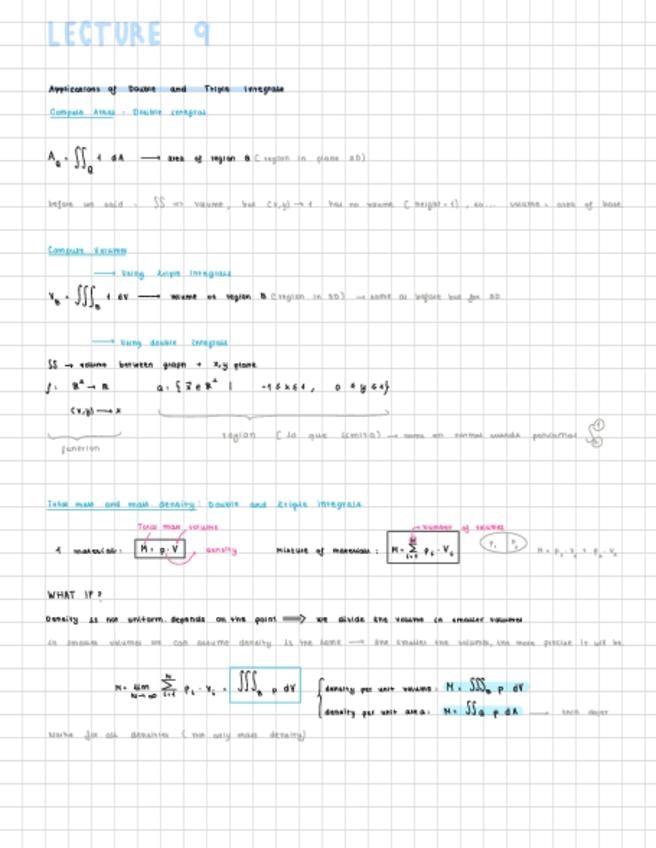 LECTURE 9
Applications of Double and Triple Integrals
Compute Areas: Double integral
A_Q = ∬_Q 1 dA → area of region Q (region in plane 2D)
before we said: ∬ => volume, but (x,y) → 1 has no volume (height=1), so... volume = area of base
Compute Volumes
→ Using triple integrals
V_B = ∭_B 1 dV → volume of region B (region in 3D) → same as before but for 3D
→ Using double integrals
∬ → volume between graph + x,y plane
f: ℝ² → ℝ Q: { x⃗ ∈ ℝ² | -1 ≤ x ≤ 1, 0 ≤ y ≤ 1}
(x,y) → x
region (lo que limita) → como en normal cuando poníamos
function
Total mass and mass density: Double and triple integrals
Total mass volume number of volumes
1 material: M = ρ · V density Mixture of materials: M = Σ_{i=1} ρ_i · V_i
WHAT IF?
Density is not uniform, depends on the point ⟹ we divide the volume in smaller volumes
in smaller volumes we can assume density is the same → the smaller the volumes, the more precise it will be
M = lim_{N→∞} Σ_{i=1}^{N} ρ_i · V_i = ∭_B ρ dV density per unit volume: M = ∭_B ρ dV
density per unit area: M = ∬_Q ρ dA →
Works for all densities (not only mass density)